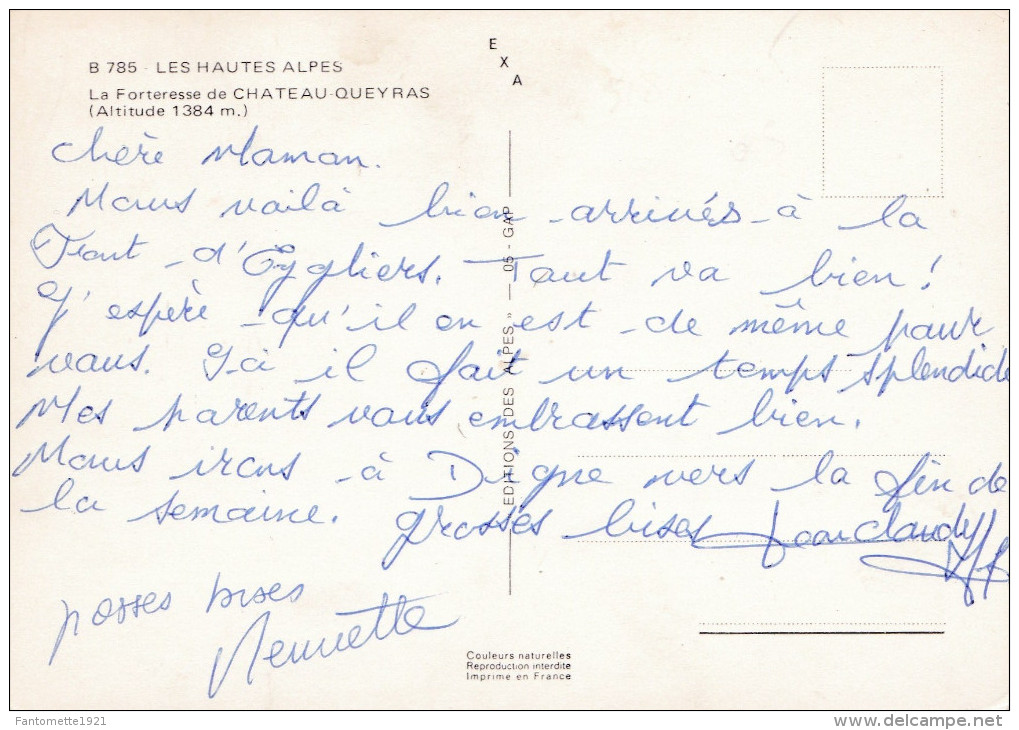 E
X
A
B 785 - LES HAUTES ALPES
La Forteresse de CHATEAU-QUEYRAS
(Altitude 1384 m.)
Chère Maman.
Nous voilà bien arrivés à la
Font d'Eygliers. Tout va bien !
J'espère qu'il en est de même pour
vous. Ici il fait un temps splendide
Mes parents vous embrassent bien.
Nous irons à Digne vers la fin de
la semaine. grosses bises Jean Claude
grosses bises
EDITIONS DES ALPES » — 05 - GAP
Couleurs naturelles
Reproduction interdite
Imprime en France
Fantomette1921
www.delcampe.net